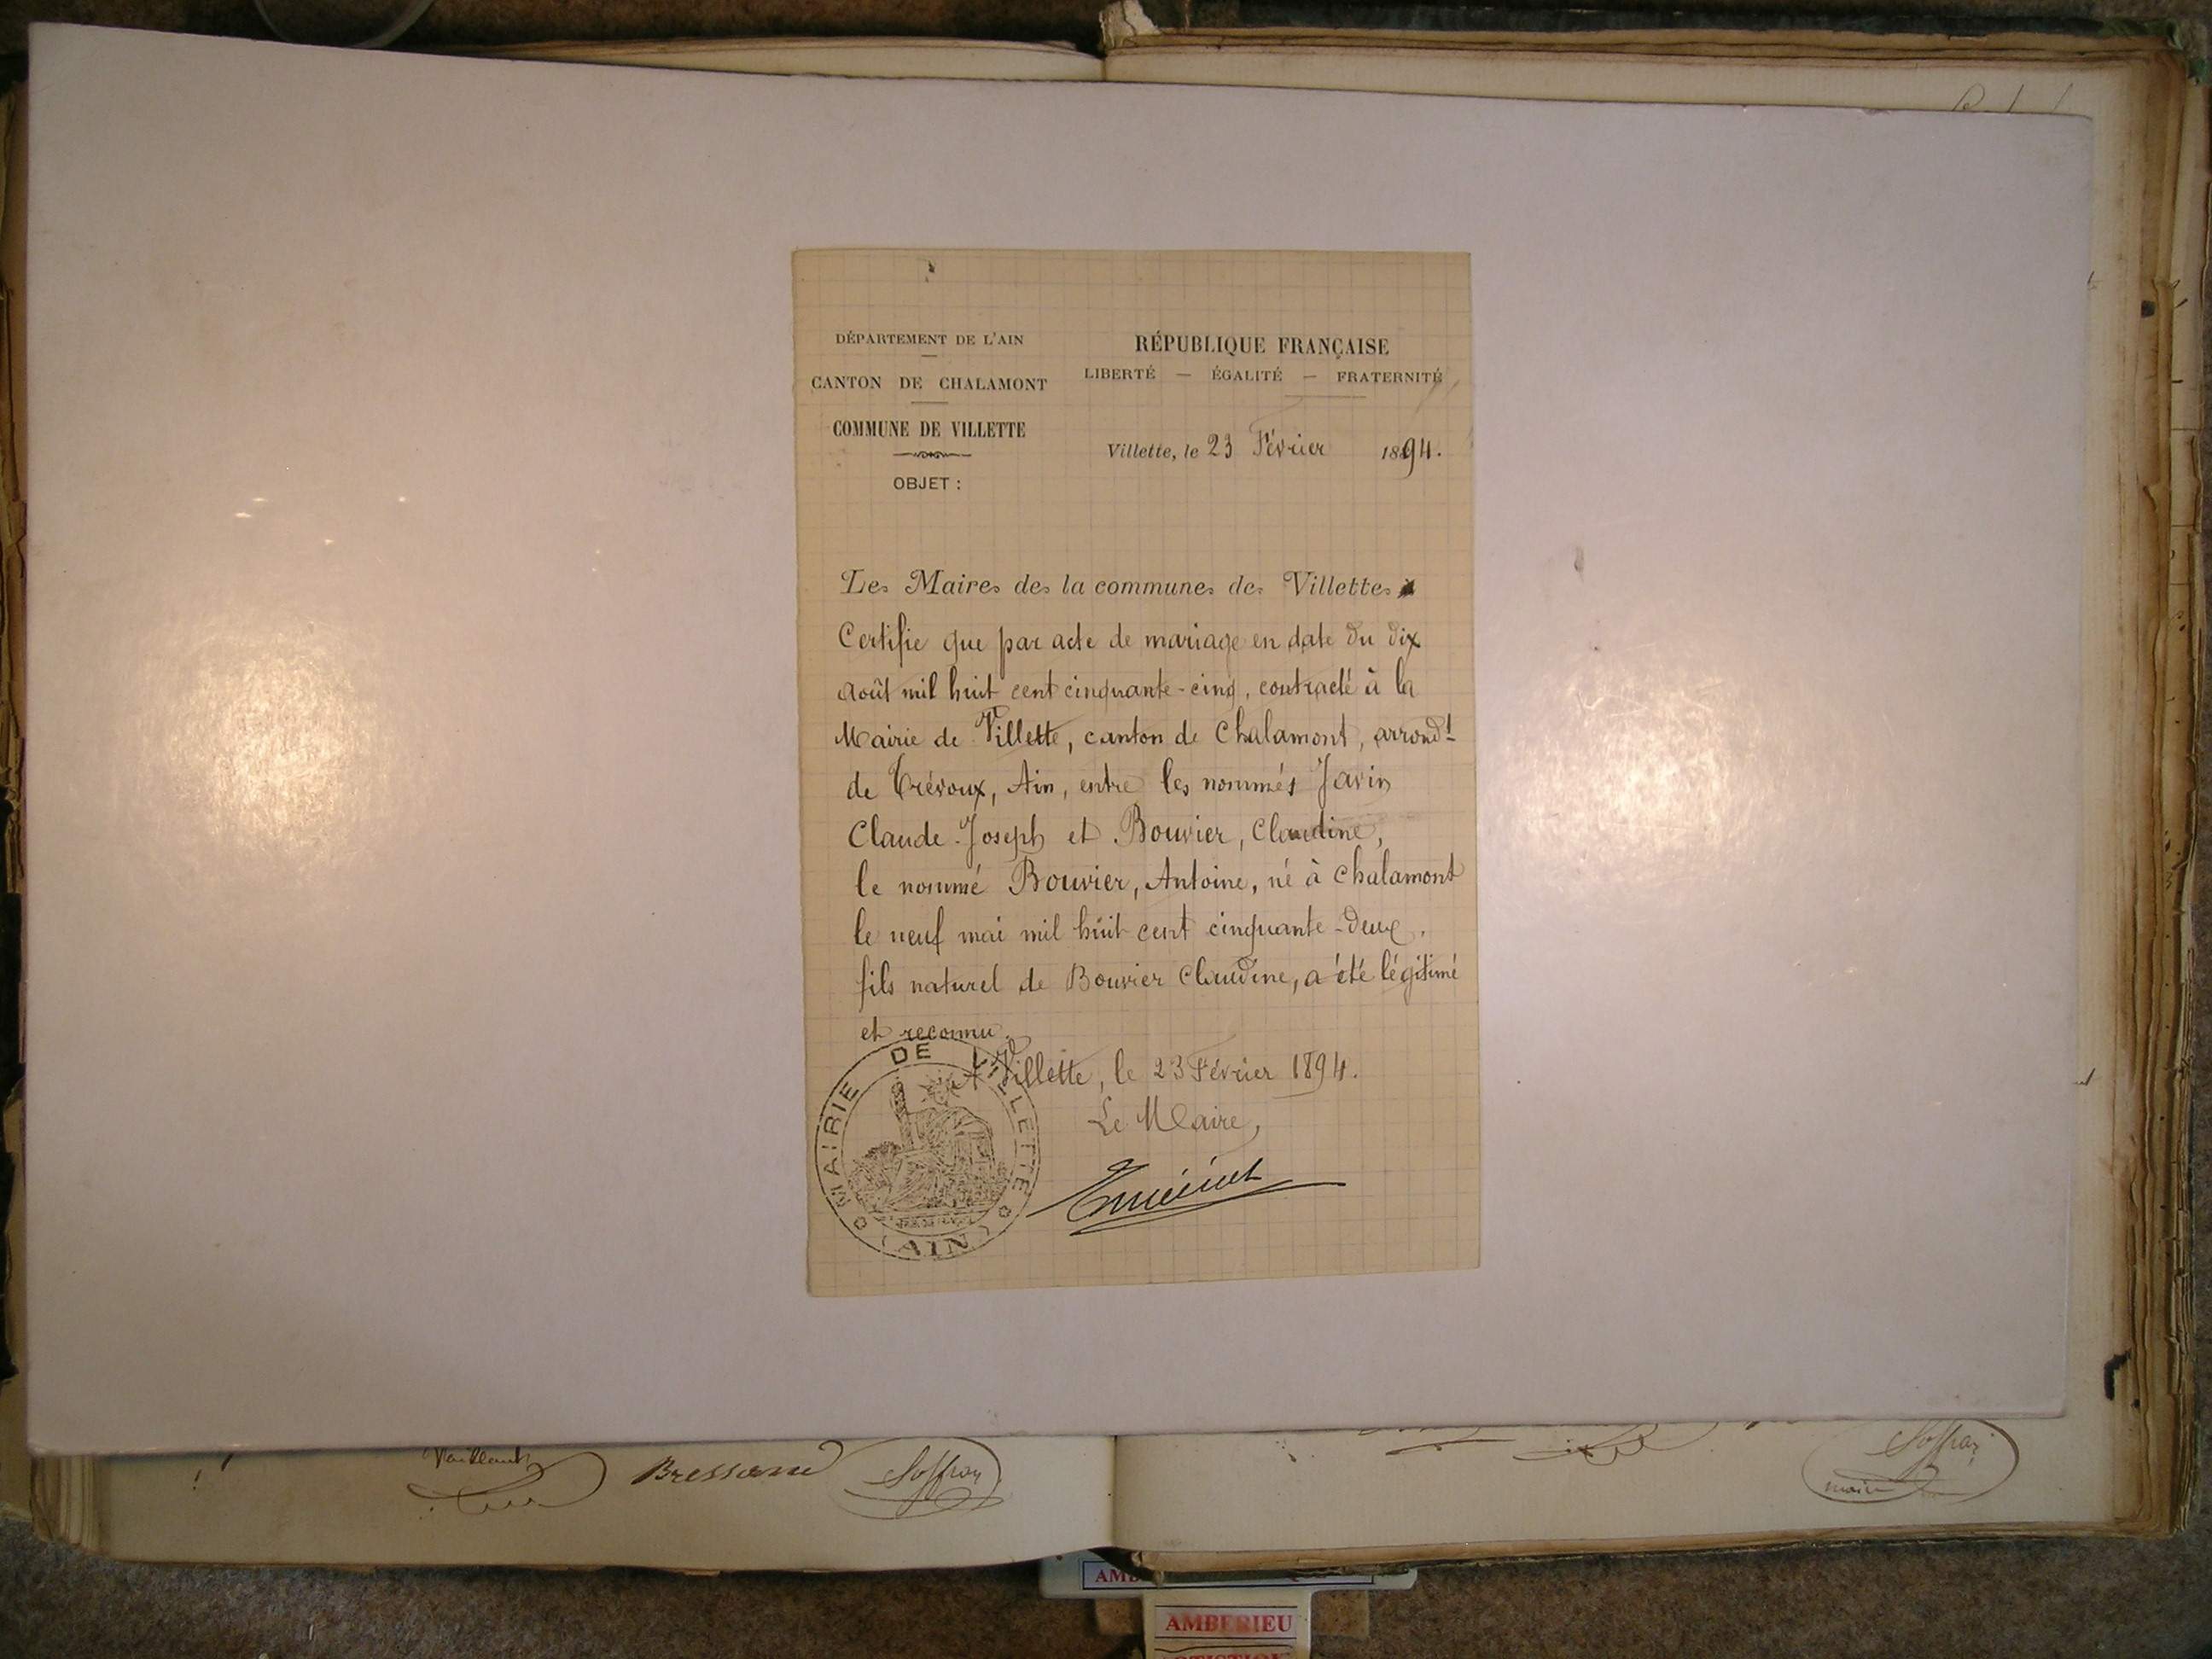 DÉPARTEMENT DE L'AIN
CANTON DE CHALAMONT
COMMUNE DE VILLETTE
OBJET :
RÉPUBLIQUE FRANÇAISE
LIBERTÉ — ÉGALITÉ — FRATERNITÉ
Villette, le 23 Février 1894.
Le Maire de la commune de Villette
Certifie que par acte de mariage en date du dix
août mil huit cent cinquante-cinq, contracté à la
Mairie de Villette, canton de Chalamont, arrondt
de Trévoux, Ain, entre les nommés Javin
Claude Joseph et Bouvier, Claudine,
le nommé Bouvier, Antoine, né à Chalamont
le neuf mai mil huit cent cinquante-deux,
fils naturel de Bouvier Claudine, a été légitimé
et reconnu.
A Villette, le 23 Février 1894.
Le Maire,
MAIRIE DE VILLETTE
(AIN)
Vaillant
Bressand
maire
AMBERIEU